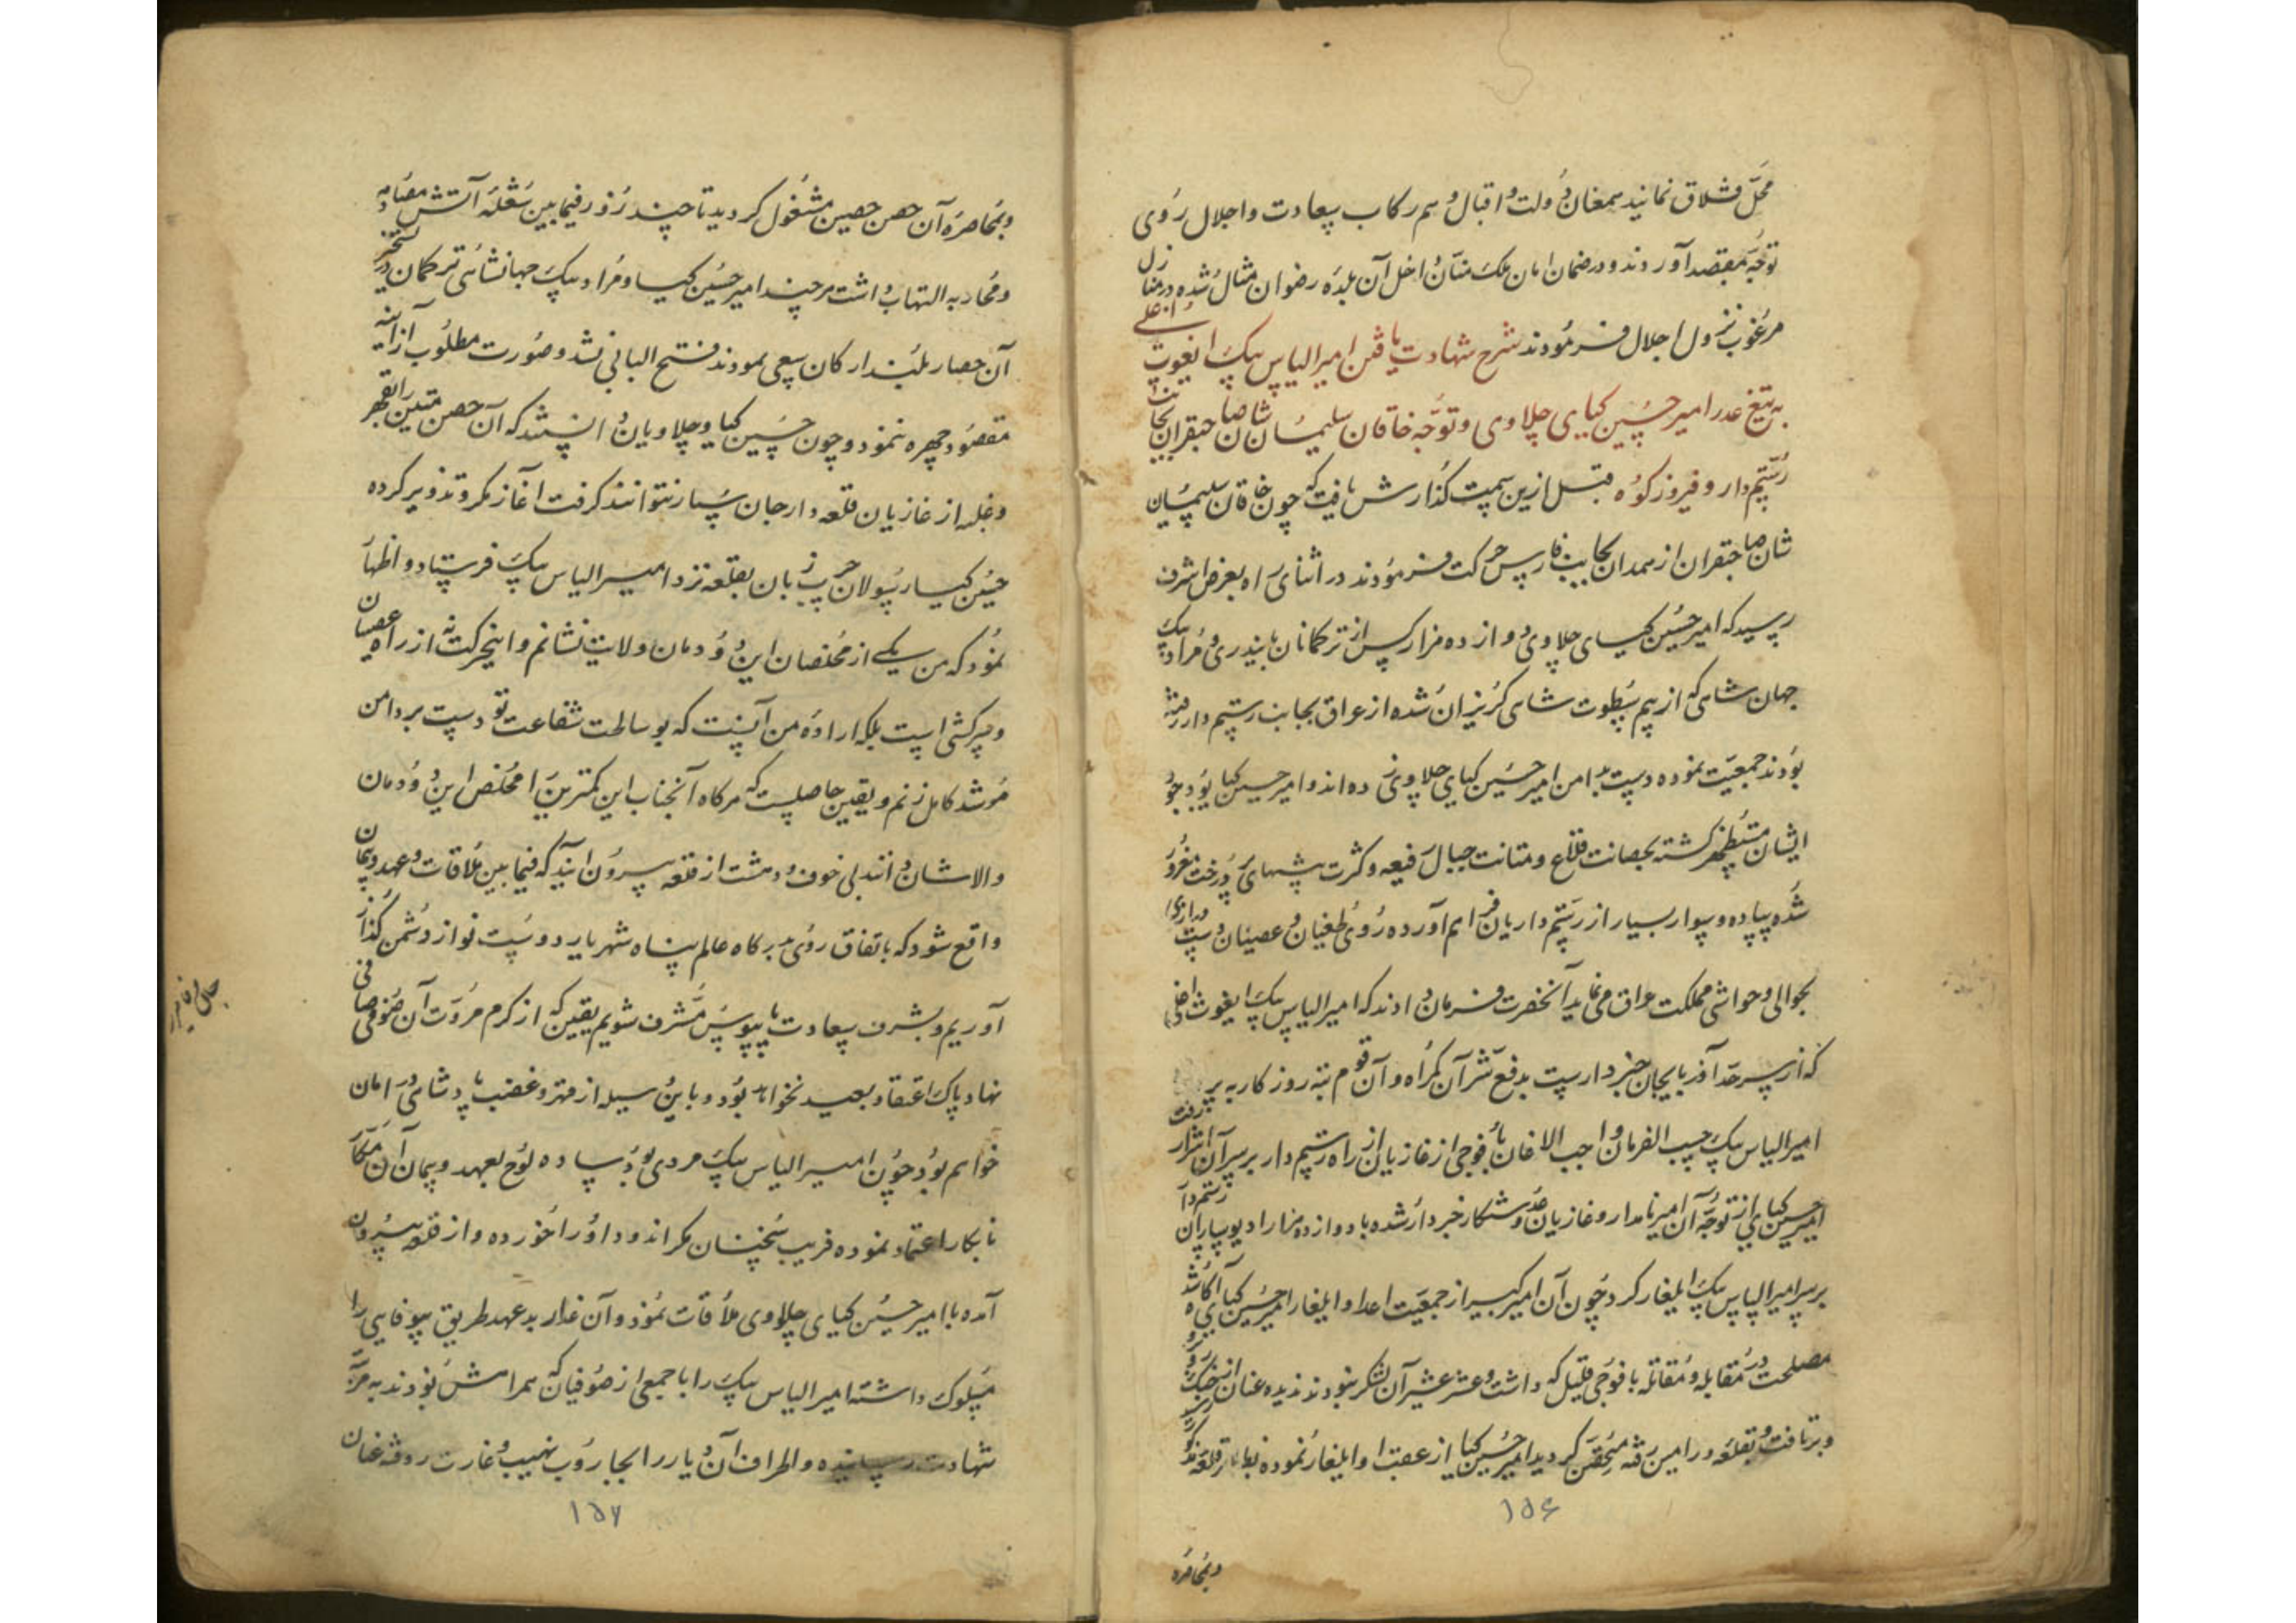 محل قشلاق نمایند همعنان دولت و اقبال و هم رکاب سعادت و اجلال روی
توجه بمقصد آوردند و در ضمان امان ملک منان داخل آن بلده رضوان مثال شده در منازل
مرغوب نزول اجلال فرمودند شرح شهادت یافتن امیر الیاس بیک ایغوت اغلی
به تیغ غدر امیر حسین کیای چلاوی و توجه خاقان سلیمان شان صاحبقران بجانب
رستمدار و فیروزکوه قبل ازین سمت گذارش یافت که چون خاقان سلیمان
شان صاحبقران از همدان بجانب فارس حرکت فرمودند در اثنای راه بعرض اشرف
رسید که امیر حسین کیای چلاوی دوازده هزار کس از ترکمانان بایندری و مراد بیک
جهان شاهی که از بیم سطوت شاهی گریزان شده از عراق بجانب رستمدار رفته
بودند جمعیت نموده دست بدامن امیر حسین کیای چلاوی زده اند و امیر حسین کیا بوجود
ایشان مستظهر گشته بحصانت قلاع و متانت جبال رفیعه و کثرت بیشهای پر درخت مغرور
شده پیاده و سوار بسیار از رستمداریان فراهم آورده روی طغیان و عصیان و دست درازی
بحوالی و حواشی مملکت عراق می نماید آنحضرت فرمان دادند که امیر الیاس بیک ایغوث اغلی
که از سرحد آذربایجان خبردارست بدفع شر آن گمراه و آن قوم تبه روزگار به
امیر الیاس بیک حسب الفرمان واجب الاذعان با فوجی از غازیان از راه رستمدار بر سر آن اشرار رفت
امیر حسین کیای از توجه آن امیر نامدار و غازیان خبردار شده با دوازده هزار از دیوساران رستمدار
بر سر امیر الیاس بیک ایلغار کرد چون آن امیر کبیر از جمعیت اعدا و ایلغار امیر حسین کیای آگاه شد
مصلحت در مقابله و مقاتله با فوجی قلیل که داشت و عشر عشیر آن لشکر نبودند ندیده عنان از جنگ
و برتافت و بقلعه ورامین رفته متحصن گردید امیر حسین کیا از عقب او ایلغار نموده قلعه
و بمحاصره
وبمحاصره آن حصن حصین مشغول گردید تا چند روز در فیما بین شعله آتش مصادمه
و محاربه التهاب داشت هر چند امیر حسین کیا و مراد بیک جهانشاهی ترکمان در تسخیر
آن حصار بلند ارکان سعی نمودند فتح البابی نشد و صورت مطلوب از آینه
مقصود چهره ننمود و چون حسین کیا و چلاویان دانستند که آن حصن متین را بقهر
و غلبه از غازیان قلعه دار جان سپار نتوانند گرفت آغاز مکر و تزویر کرده
حسین کیا رسولان چرب زبان بقلعه نزد امیر الیاس بیک فرستاد و اظهار
نمود که من یکی از مخلصان این دودمان ولایت نشانم و این حرکت نه از راه عصیان
و سرکشی است بلکه اراده من آنست که بوساطت شفاعت تو دست بر دامن
مرشد کامل زنم و یقین حاصلست که هرگاه آنجناب این کمترین را مخلص این دودمان
والاشان دانند بی خوف و دهشت از قلعه بیرون آیند که فیما بین ملاقات و عهد و پیمان
واقع شود که باتفاق روی بدرگاه عالم پناه شهریار دوست نواز دشمن گداز
آوریم و بشرف سعادت پایبوس مشرف شویم یقین که از کرم مروت آن صوفی صافی
نهاد پاک اعتقاد بعید نخواهد بود و باین وسیله از قهر و غضب پادشاهی در امان
خواهم بود چون امیر الیاس بیک مردی بود ساده لوح بعهد و پیمان آن مکار
نابکار اعتماد نموده فریب سخنان مکر اندود او را خورده و از قلعه بیرون
آمده با امیر حسین کیای چلاوی ملاقات نمود و آن غدار بدعهد طریق بیوفایی را
مسلوک داشته امیر الیاس بیک را با جمعی از صوفیان که همراهش بودند به مرتبه
شهادت رسانیده و اطراف آن دیار را بجاروب نهیب و غارت رفته عنان
۱۵۶
۱۵۷